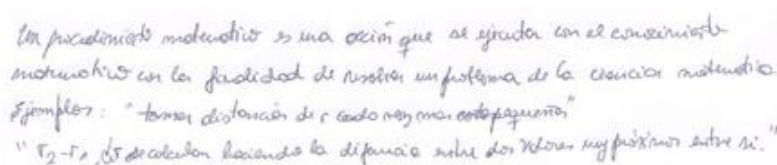 Un procedimiento matematico es una acción que se ejecuta con el conocimiento
matematico con la finalidad de resolver un problema de la ciencia matematica
Ejemplos: "tomar distancia de r cada vez mas pequeños"
" r₂-r₁, dr se calculan haciendo la diferencia entre dos valores muy próximos entre si."